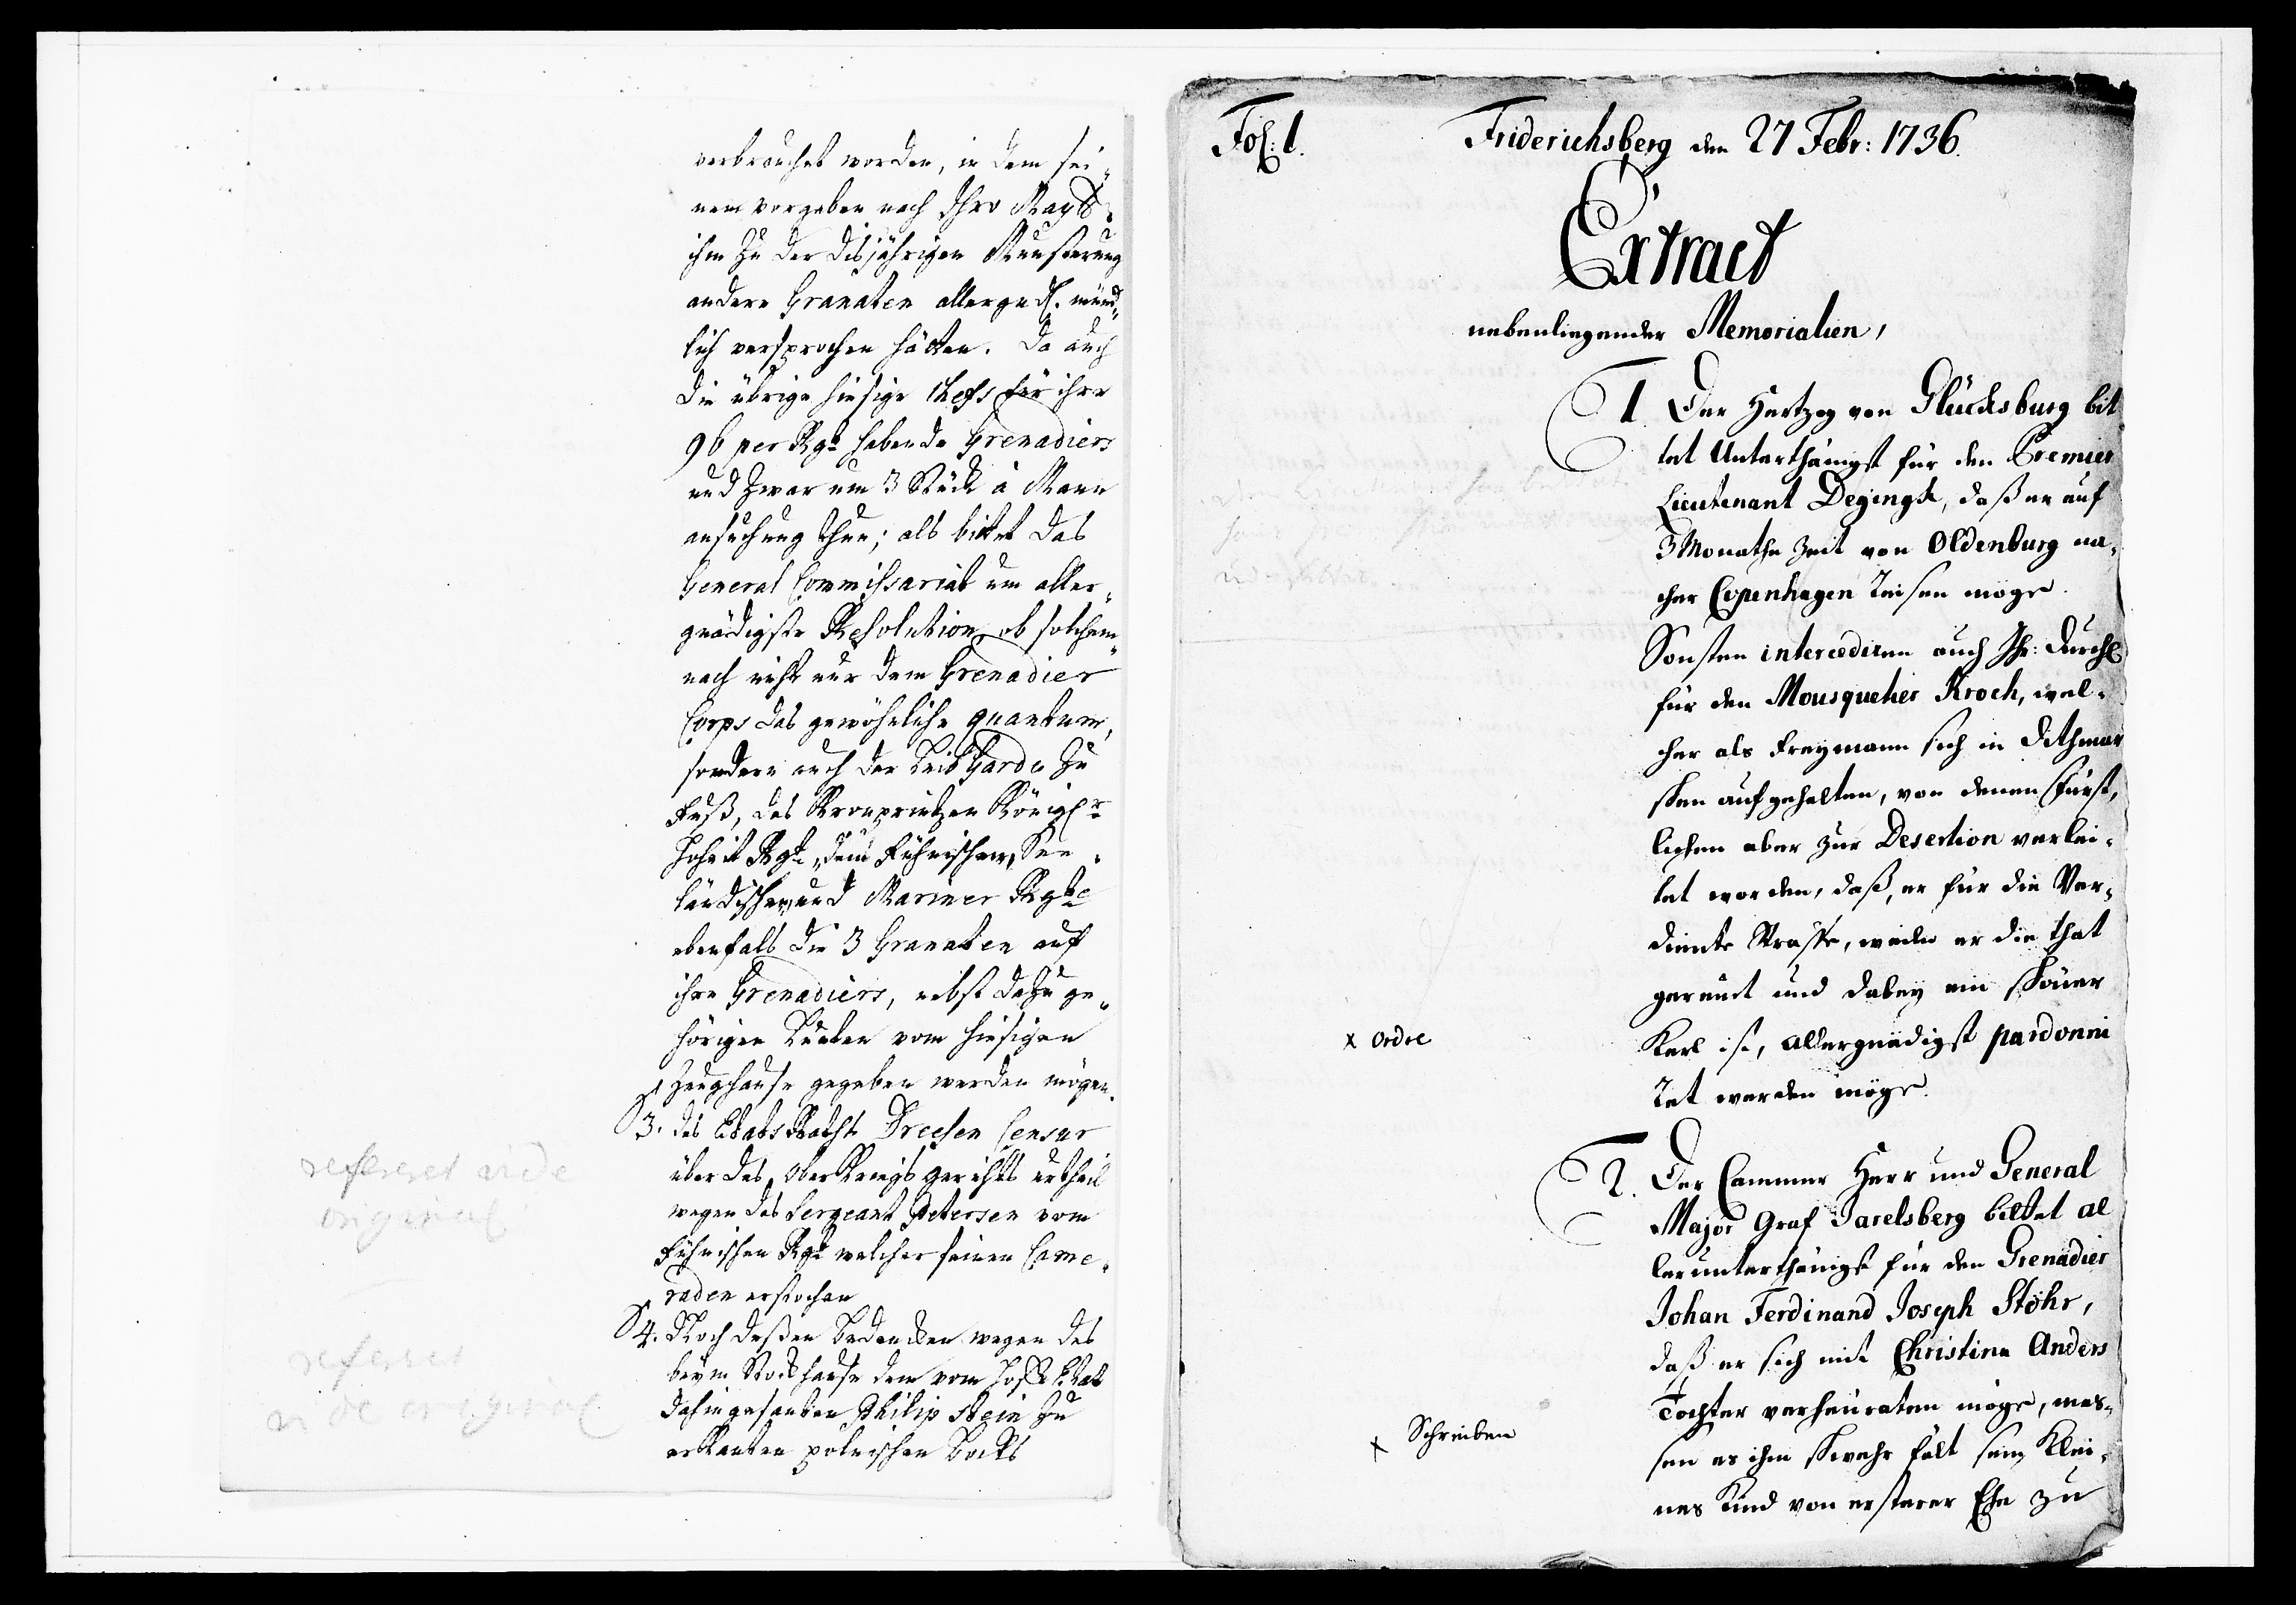 verbrauchet worden, in dem sei„
nem vorgeben nach Ihro Maytt.
ihm zu der disjährigen Munsterung
andere Granaten allergndl. münd„
lich versprochen hätten. Da auch
die übrige hiesige Chefs für ihre
96 per Rgt habende Grenadiers
und zwar um 3 Stück à Mann
ansuchung thun; als bittet das
General Commissariat um aller„
gnädigste Resolution, ob solchem„
nach nicht nur dem Grenadier
Corps das gewöhnliche quantum,
sondern auch der Leib Garde zu
Fuß, des Kronprintzen Königlr
Hoheit Rgt, dem Fühnischen, See„
ländischen, und Mariner Rgte
ebenfals die 3 Granaten auf
ihre Grenadiers, nebst dazu ge„
hörigen Lunten vom hiesigen
Zeughause gegeben werden mögen.
3. des Etats Raths Dreesen Censur
über das Ober Kriegs gerichts urtheil
wegen des Sergeant Petersen vom
Fühnischen Rgt welcher seinen Came„
raden erstochen
4. Noch deßen bedencken wegen des
beym Stockhause dem vom Hoff Etat
dahin gesandten Philip Stein zu
erkanten polnischen Bocks
referet vide
original
referet
vide original
Fol: 1.
Friderichsberg den 27 Febr: 1736.
Extract
nebenliegender Memorialien,
1. Der Hertzog von Glücksburg bit
tet Unterthänigst für den Premier
Lieutenant Degingk, daß er auf
3 Monathe Zeit von Oldenburg na„
cher Copenhagen reisen möge.
Sonsten intercediren auch Ihr: Durchl
für den Mousquetier Kroch, wel„
cher als Freymann sich in Dithmar
schen aufgehalten, von denen Fürst„
lichen aber zur Desertion verlei„
tet worden, daß, er für die Ver„
diente Straffe, weilen er die that
gereuet und dabey ein schöner
Kerl ist, allergnädigst pardonni
ret werden möge.
x ordre
2. Der Cammer Herr und General
Major Graf Jarelsberg bittet al
lerunterthänigst für den Grenadier
Johan Ferdinand Joseph Stöhr,
daß er sich mit Christina Anders
Tochter verheuraten möge, mas„
sen es ihm schwehr fält sein Klei„
nes Kind von ersterer Ehe zu
x Schreiben